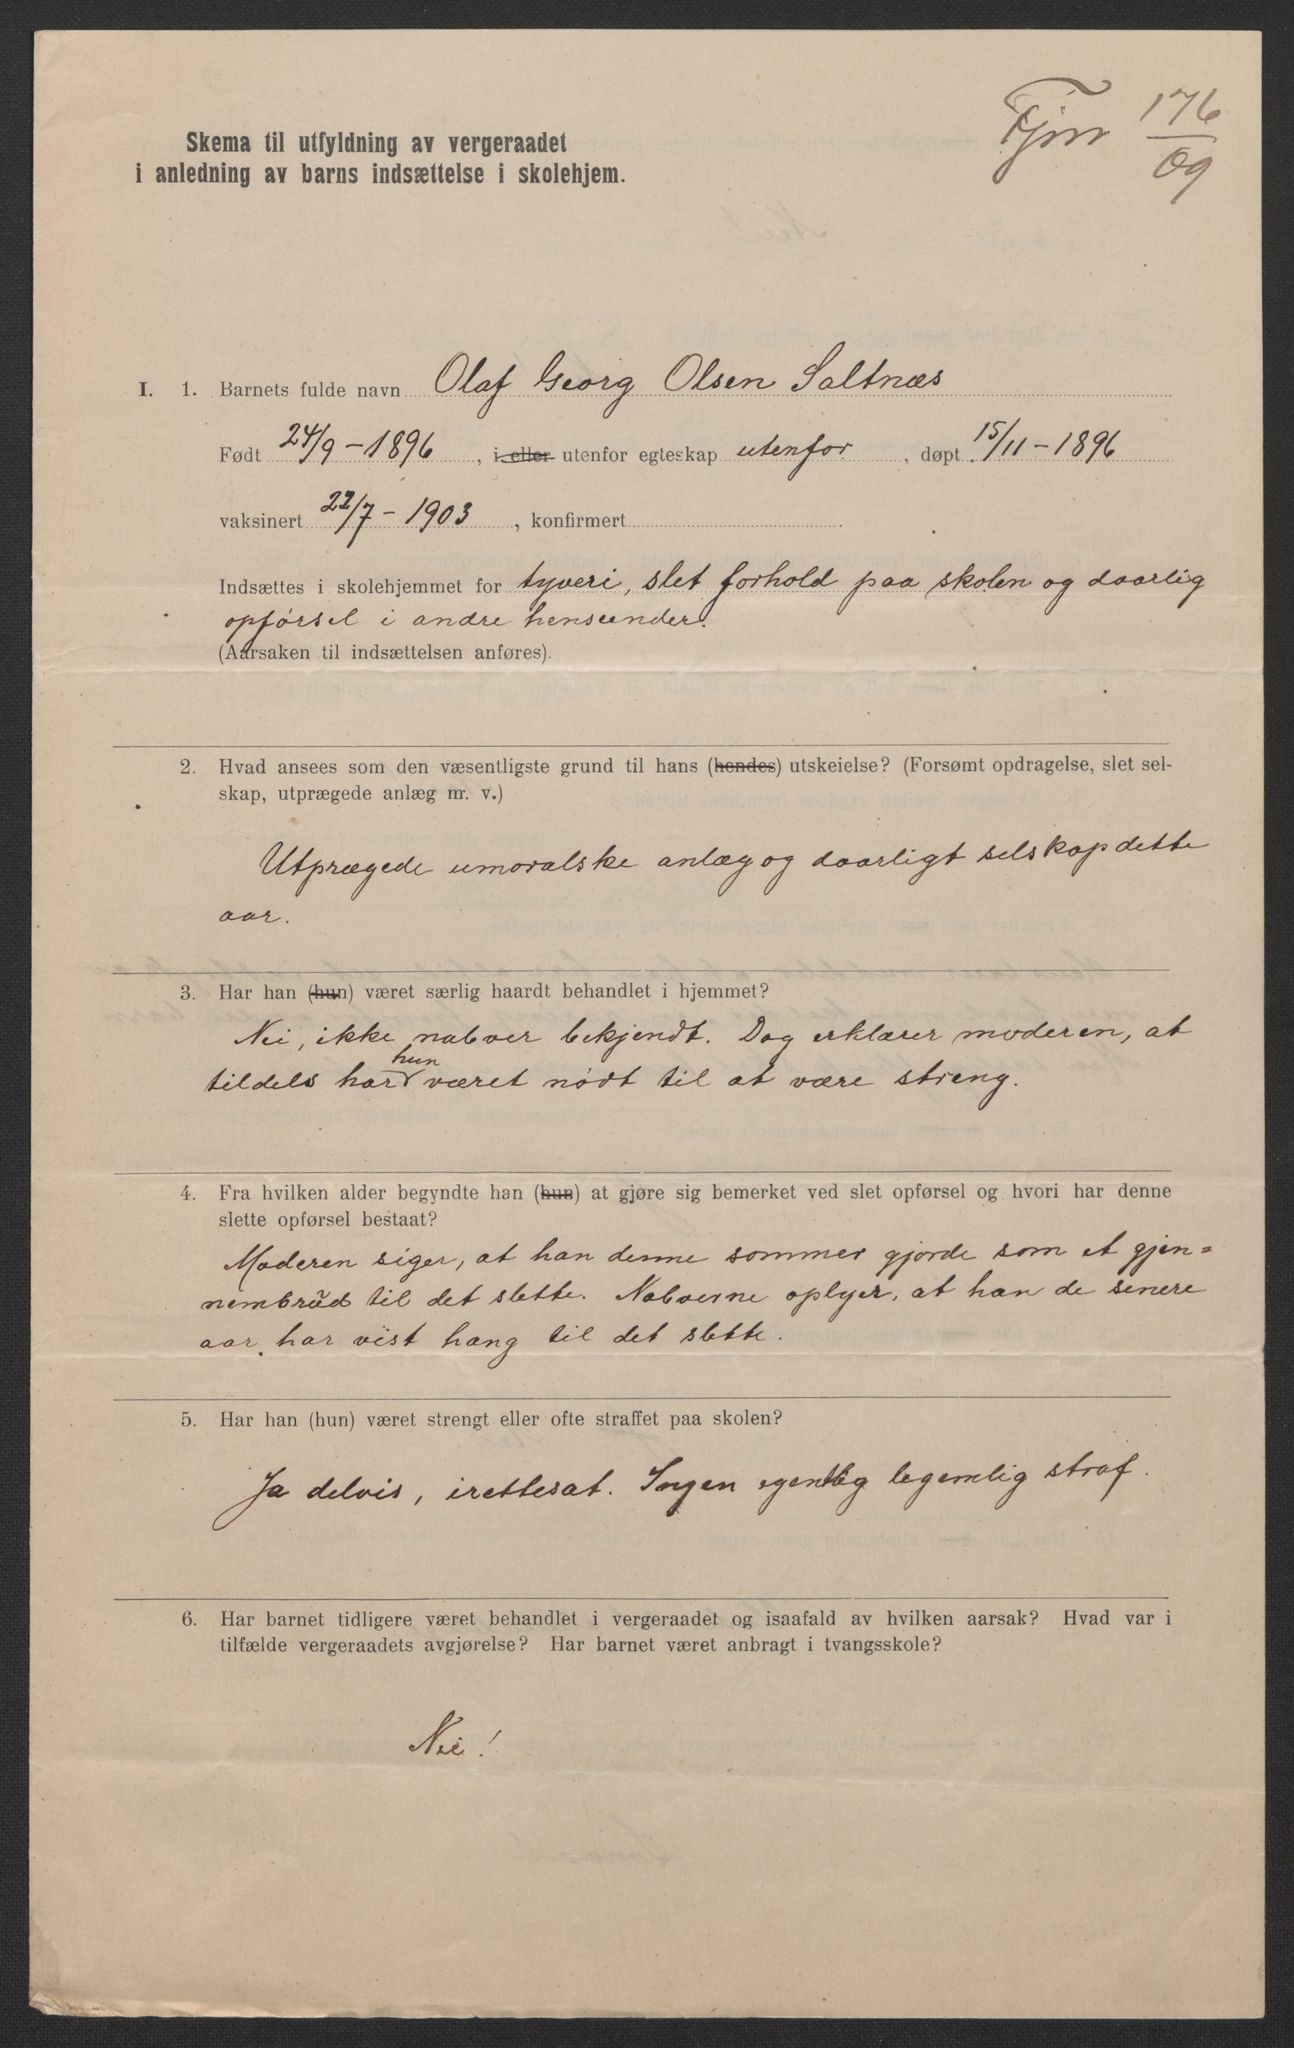 Fjm 176
09
Skema til utfyldning av vergeraadet
i anledning av barns indsættelse i skolehjem.
I. 1. Barnets fulde navn Olaf Georg Olsen Saltnæs
Født 24/9 - 1896, i eller utenfor egteskap utenfor, døpt 15/11 - 1896
vaksinert 22/7 - 1903, konfirmert
Indsættes i skolehjemmet for tyveri, slet forhold paa skolen og daarlig
opførsel i andre henseender.
(Aarsaken til indsættelsen anføres).
2. Hvad ansees som den væsentligste grund til hans (hendes) utskeielse? (Forsømt opdragelse, slet sel-
skap, utprægede anlæg m. v.)
Utprægede umoralske anlæg og daarligt selskap dette
aar.
3. Har han (hun) været særlig haardt behandlet i hjemmet?
Nei, ikke naboer bekjendt. Dog erklærer moderen, at
tildels har hun været nødt til at være streng.
4. Fra hvilken alder begyndte han (hun) at gjøre sig bemerket ved slet opførsel og hvori har denne
slette opførsel bestaat?
Moderen siger, at han denne sommer gjorde som et gjen=
nembrud til det slette. Naboerne oplyer, at han de senere
aar har vist hang til det slette.
5. Har han (hun) været strengt eller ofte straffet paa skolen?
Ja delvis, irettesat. Ingen egentlig legemlig straf.
6. Har barnet tidligere været behandlet i vergeraadet og isaafald av hvilken aarsak? Hvad var i
tilfælde vergeraadets avgjørelse? Har barnet været anbragt i tvangsskole?
Nei!